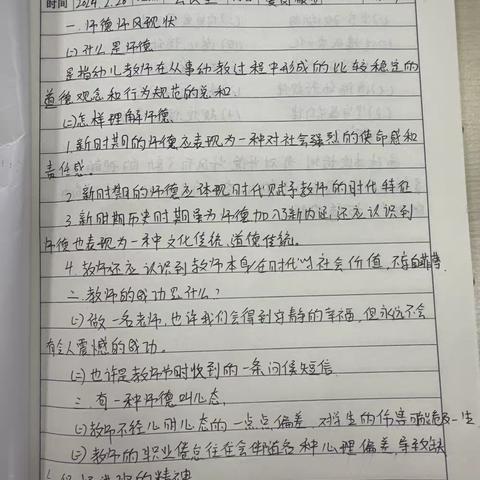 时间 2024.2.26
一.师德师风现状
(一)什么是师德
是指幼儿教师在从事幼教过程中形成的比较稳定的
道德观念和行为规范的总和.
(二)怎样理解师德.
1.新时期的师德应表现为一种对社会强烈的使命感和
责任感.
2.新时期的师德应体现时代赋予教师的时代特征
3.新时期历史时期虽为师德加入了新内涵,还应认识到
师德也表现为一种文化传统、道德传统。
4.教师还应认识到教师本身在时代 社会价值,不
二.教师的成功是什么?
(一)做一名老师,也许我们会得到宁静的幸福,但永远不会
有令人震憾的成功.
(二)也许是教师节时收到的一条问候短信
三.有一种师德叫心态.
(一)教师不经心明心态的一点点偏差,对学生的伤害 一生
(二)教师的职业倦怠往往会伴随各种心理偏差,导致缺
的精神